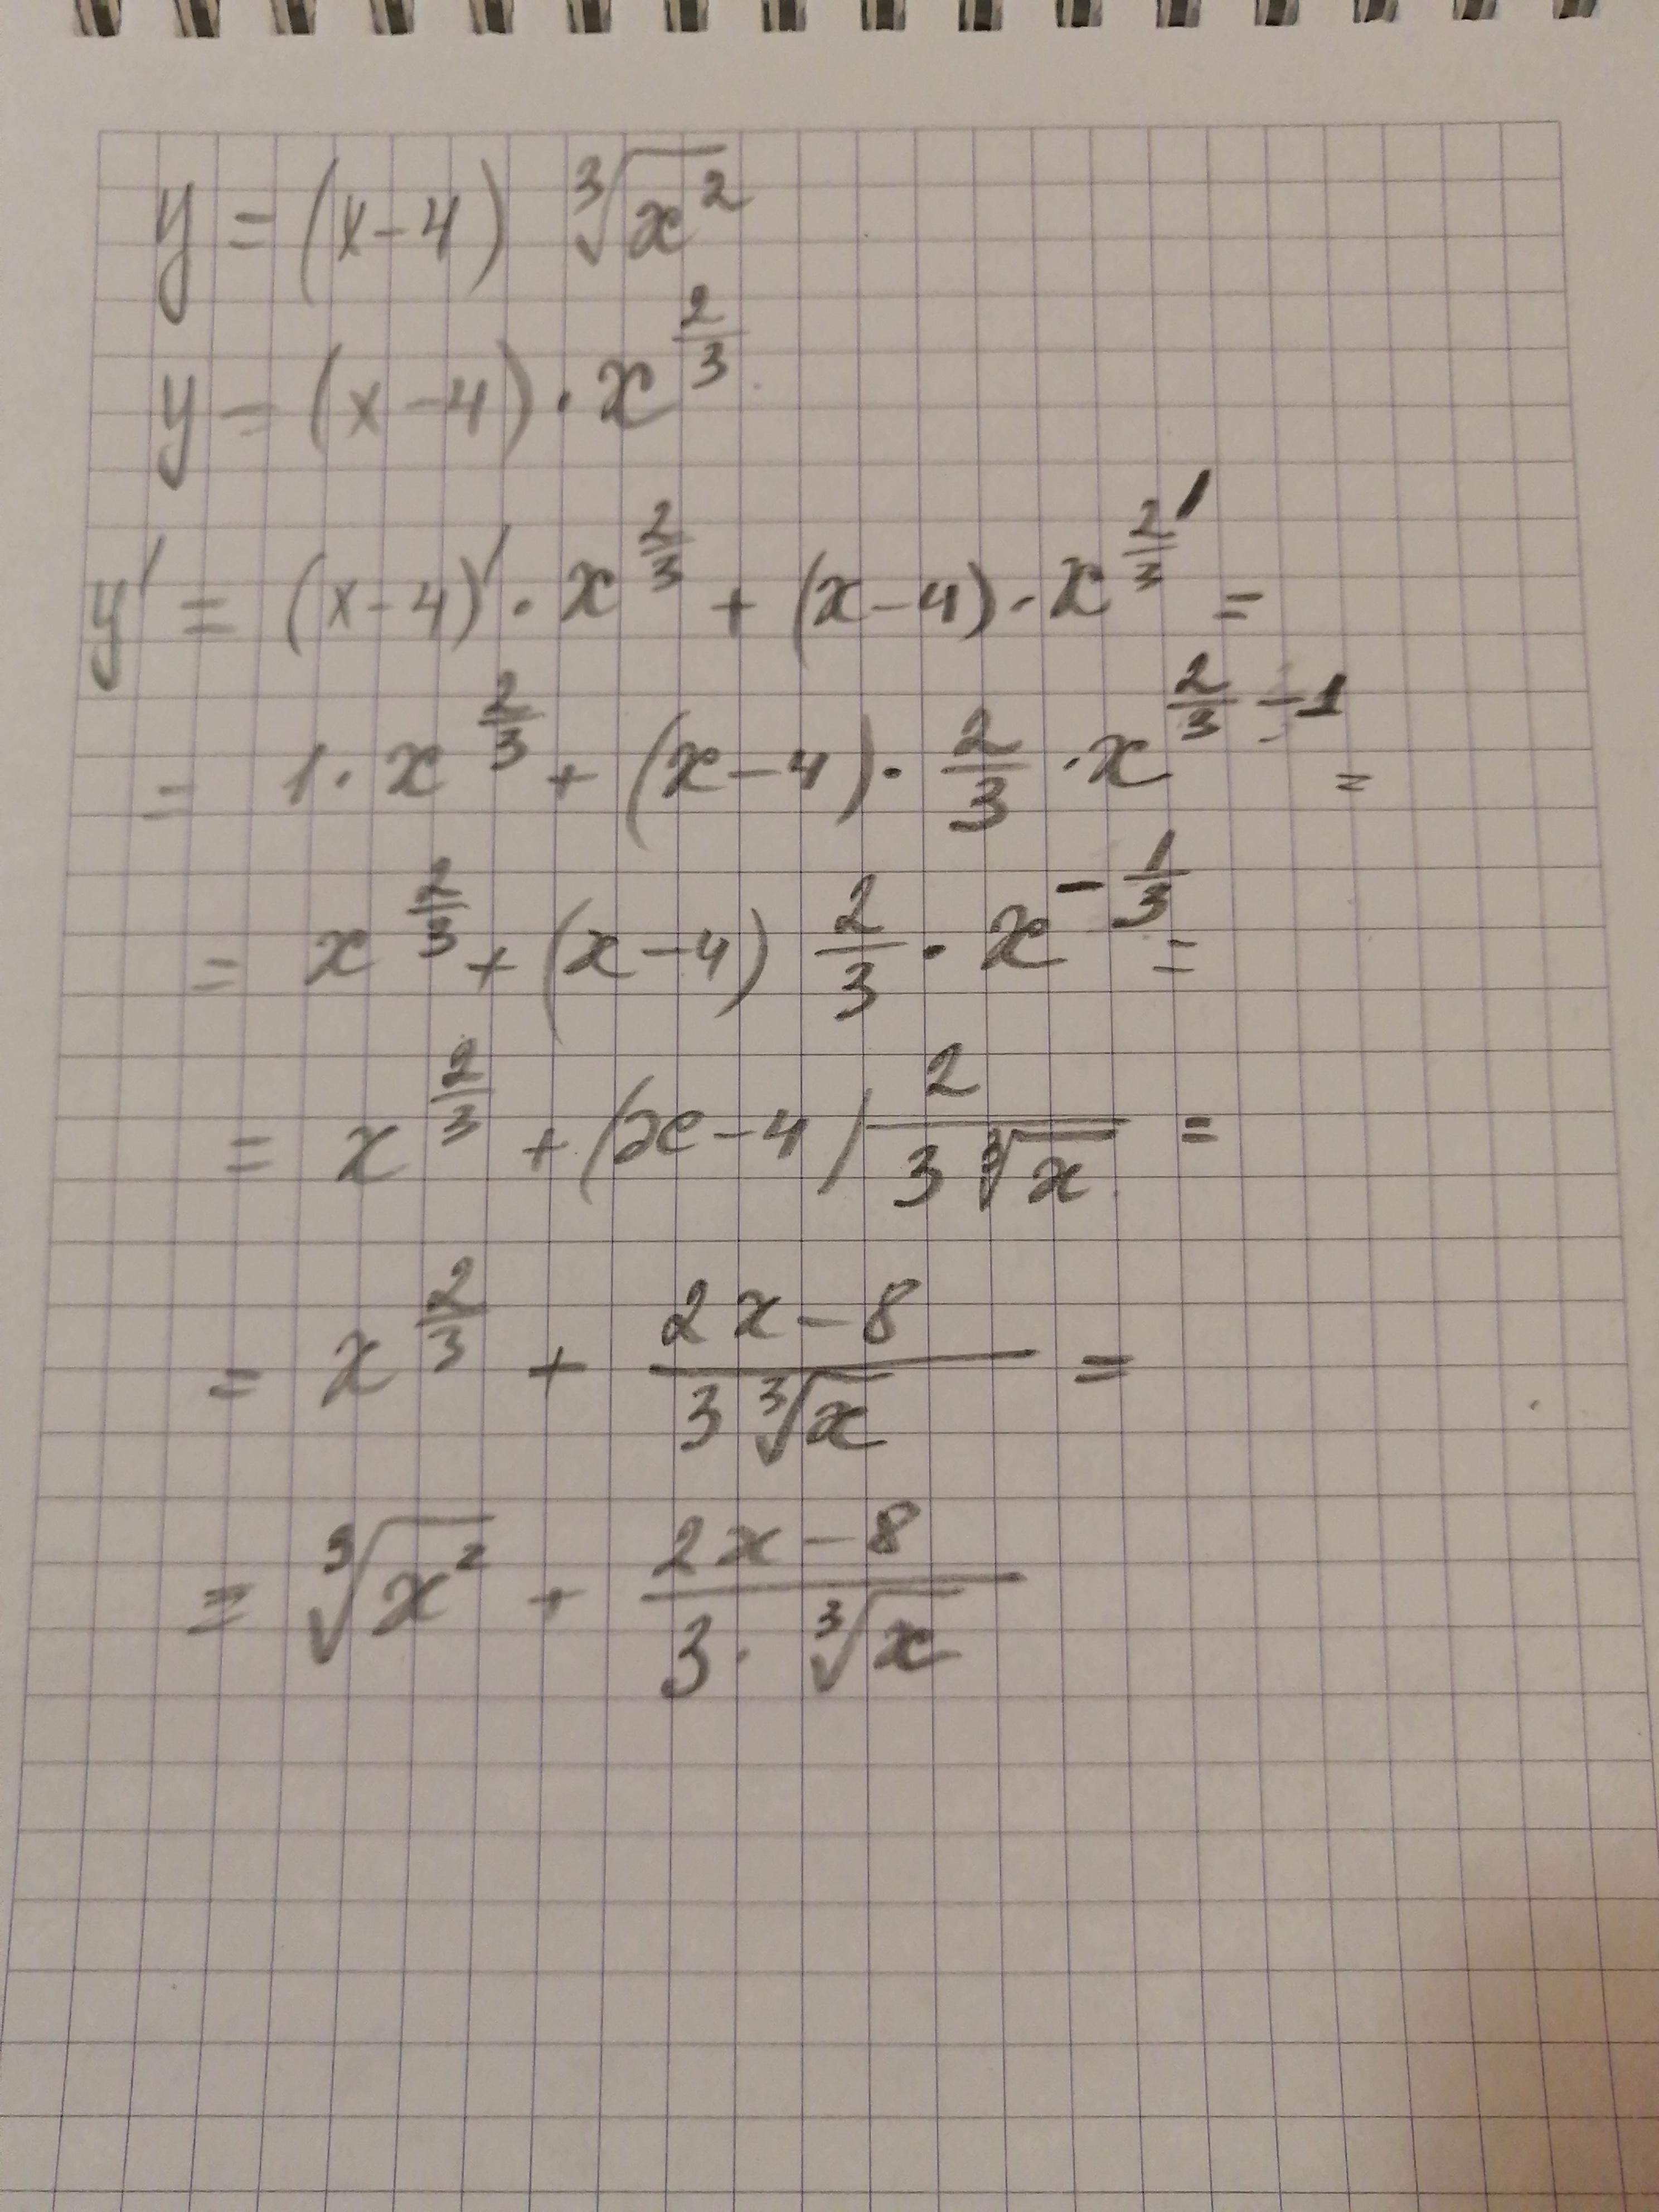 y = (x-4) ∛x²
y = (x-4) · x^(2/3)
y' = (x-4)' · x^(2/3) + (x-4) · x^(2/3)' =
= 1 · x^(2/3) + (x-4) · 2/3 · x^(2/3 - 1) =
= x^(2/3) + (x-4) 2/3 · x^(-1/3) =
= x^(2/3) + (x-4) 2/(3∛x) =
= x^(2/3) + (2x-8)/(3∛x) =
= ∛x² + (2x-8)/(3·∛x)